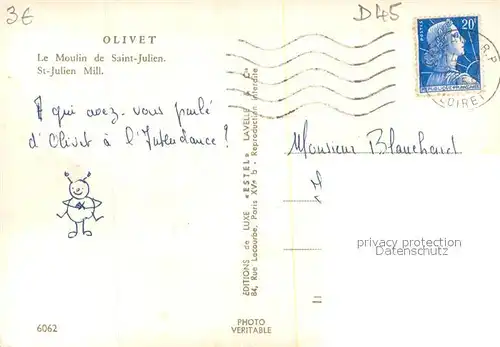 3€
D45
OLIVET
Le Moulin de Saint-Julien.
St-Julien Mill.
POSTES
20F
R.P
LOIRET
A qui avez-vous parlé
d'Olivet à l'Intendance ?
Monsieur Blanchard
ÉDITIONS de LUXE «ESTEL» LAVELLE & Cie
84, Rue Lacourbe, Paris XVe b - Reproduction interdite
privacy protection
Datenschutz
6062
PHOTO
VÉRITABLE